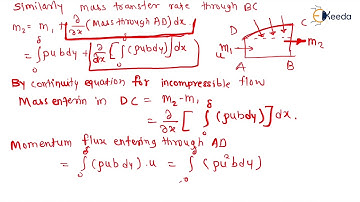 Similarly mass transfer rate through BC
m₂ = m₁ + ∂/∂x (Mass through AD) dx
= ∫₀^δ ρubdy + ∂/∂x [∫₀^δ (ρubdy)] dx
By continuity equation for incompressible flow
Mass enterin in DC = m₂-m₁
= ∂/∂x [ ∫₀^δ (ρubdy) ] dx.
Momentum flux entering through AD
= ∫₀^δ (ρubdy) . u = ∫₀^δ (ρu²bdy)
Ekeeda
D
C
m₁
u
m₂
A
B